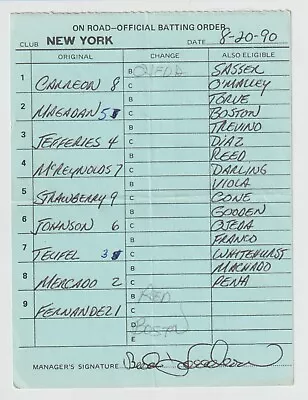 ON ROAD—OFFICIAL BATTING ORDER
CLUB NEW YORK DATE 8-20-90
ORIGINAL CHANGE ALSO ELIGIBLE
1 CARREON 8 B OJEDA C
2 MAGADAN 5 B C
3 JEFFERIES 4 B C
4 McREYNOLDS 7 B C
5 STRAWBERRY 9 B C
6 JOHNSON 6 B C
7 TEUFEL 3 B C
8 MERCADO 2 B C
9 FERNANDEZ 1 B C D E
SASSER
O'MALLEY
TORVE
BOSTON
TREVINO
DIAZ
REED
DARLING
VIOLA
CONE
GOODEN
OJEDA
FRANCO
WHITEHURST
MACHADO
PENA
RED
BOSTON
MANAGER'S SIGNATURE